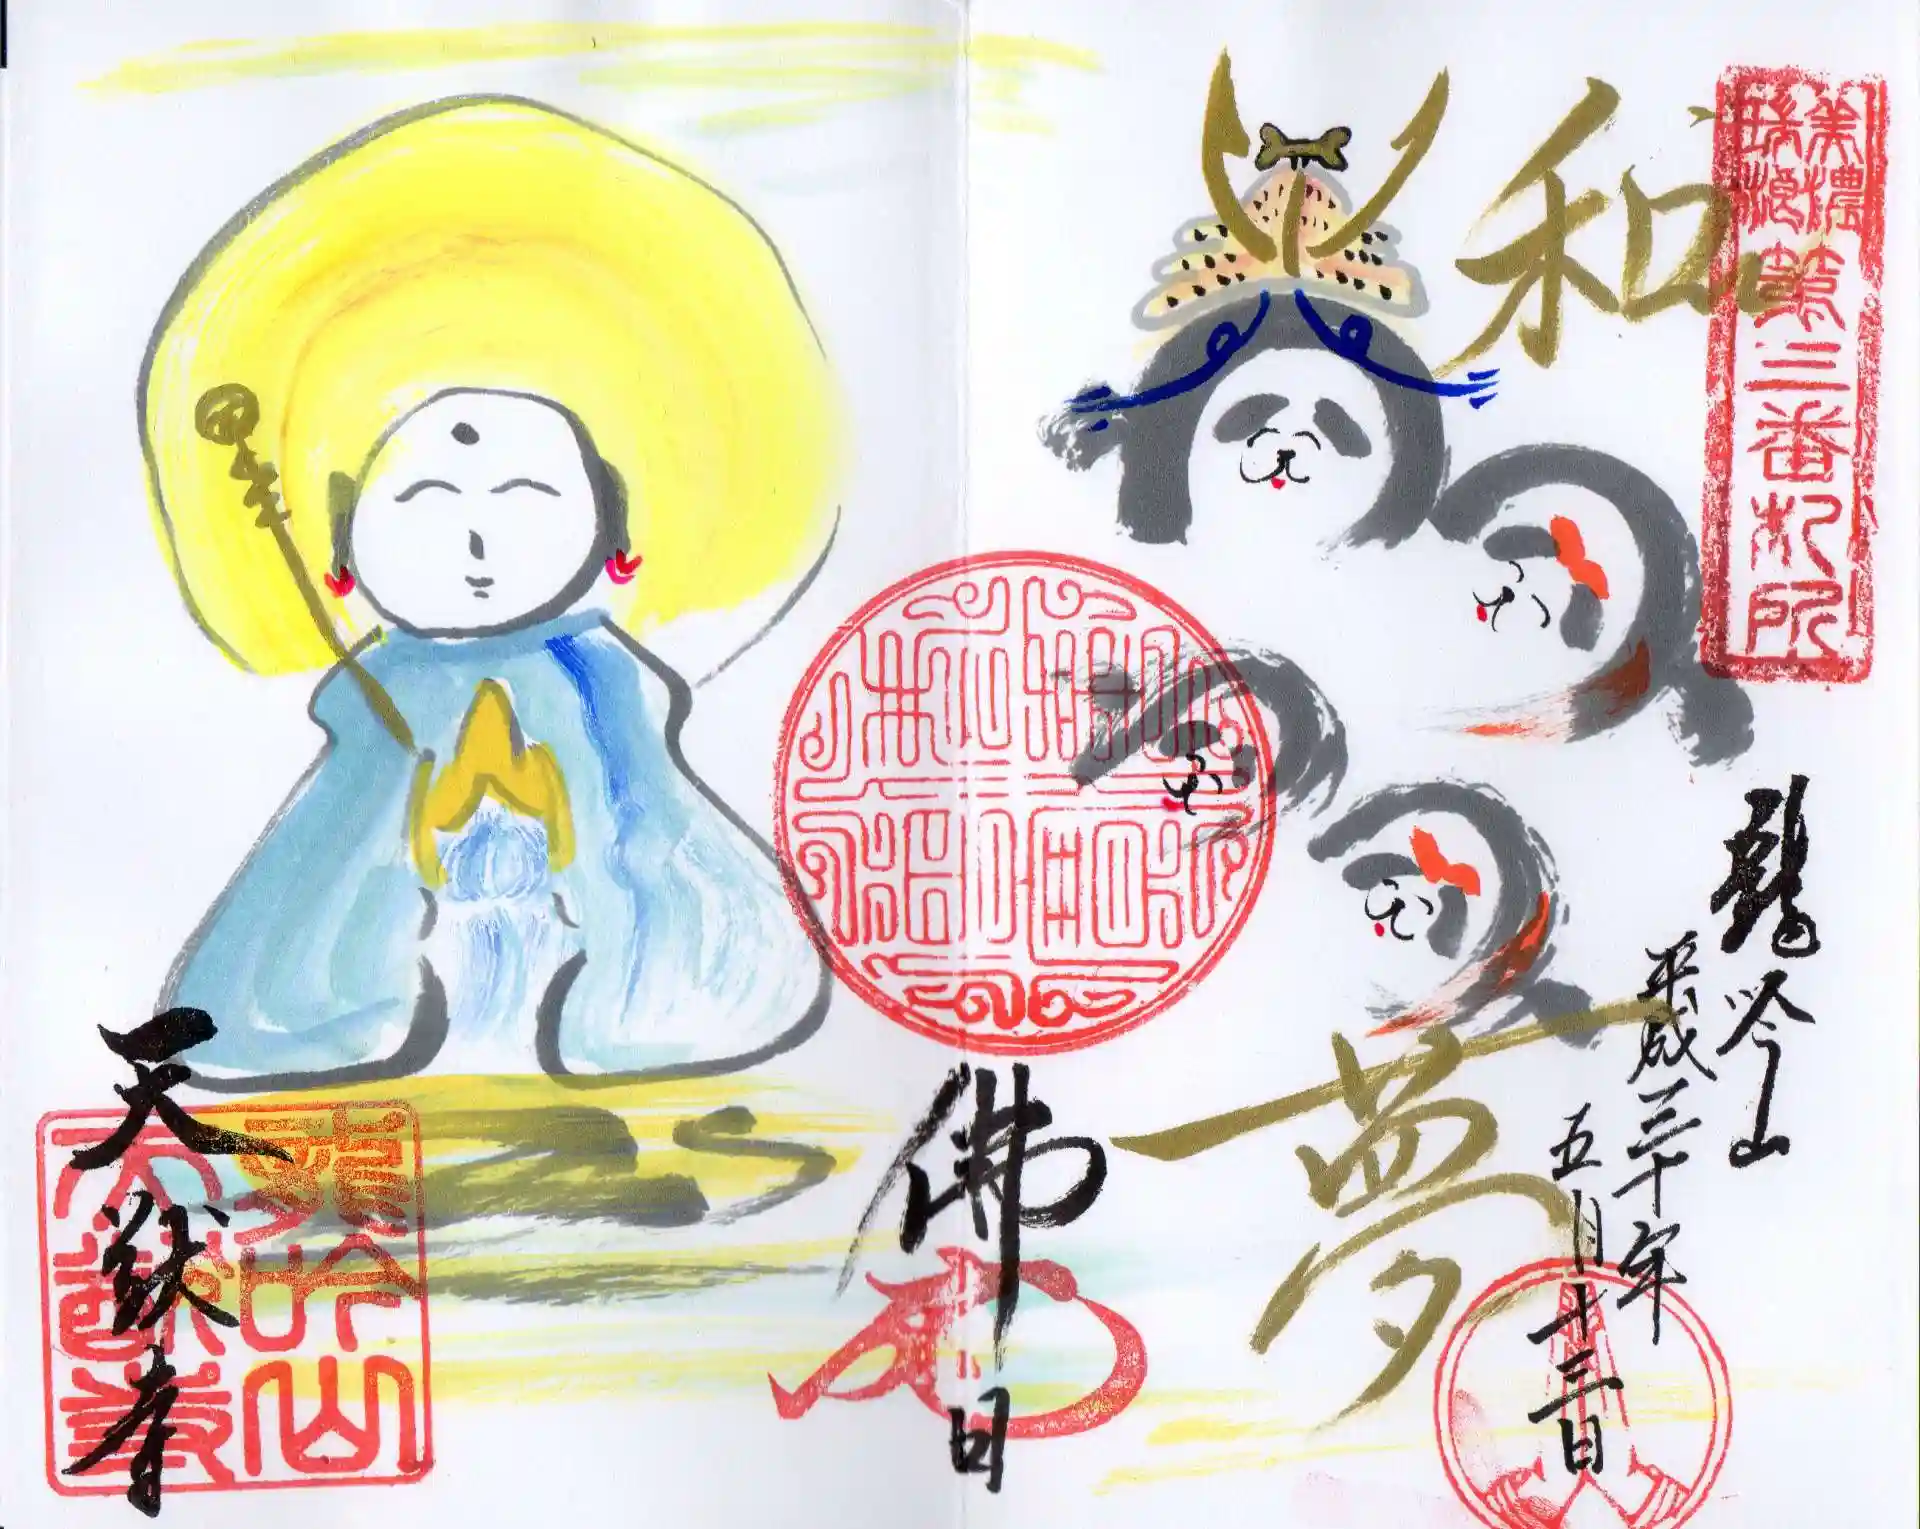 美濃
瑞浪
第三番札所
和
夢
龍吟山
平成三十年
五月十三日
佛日
天猷寺
龍吟山
天猷寺